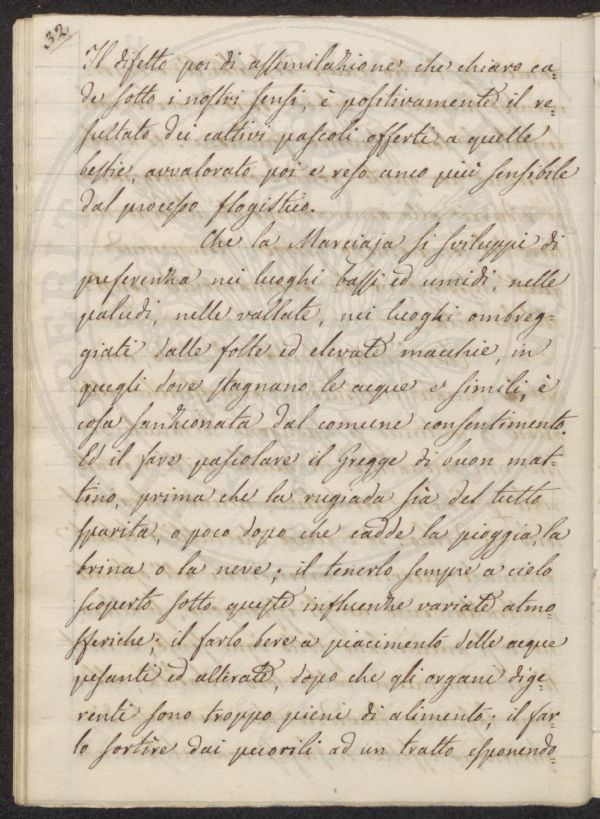 32
Il difetto poi di assimilazione che chiaro ca-
de sotto i nostri sensi, è positivamente il re-
sultato dei cattivi pascoli offerti a quelle
bestie, avvalorato poi e reso anco più sensibile
dal processo flogistico.
Che la Marciaja si sviluppi di
preferenza nei luoghi bassi ed umidi, nelle
paludi, nelle vallate, nei luoghi ombreg-
giati dalle folte ed elevate macchie, in
quegli dove stagnano le acque e simili, è
cosa sanzionata dal comune consentimento.
Ed il fare pascolare il Gregge di buon mat-
tino, prima che la rugiada sia del tutto
sparita, o poco dopo che cadde la pioggia, la
brina o la neve; il tenerlo sempre a cielo
scoperto sotto queste influenze variate atmo-
sferiche; il farlo bere a piacimento delle acque
pesanti ed alterate, dopo che gli organi dige-
renti sono troppo pieni di alimento; il far-
lo sortire dai pecorili ad un tratto esponendo-